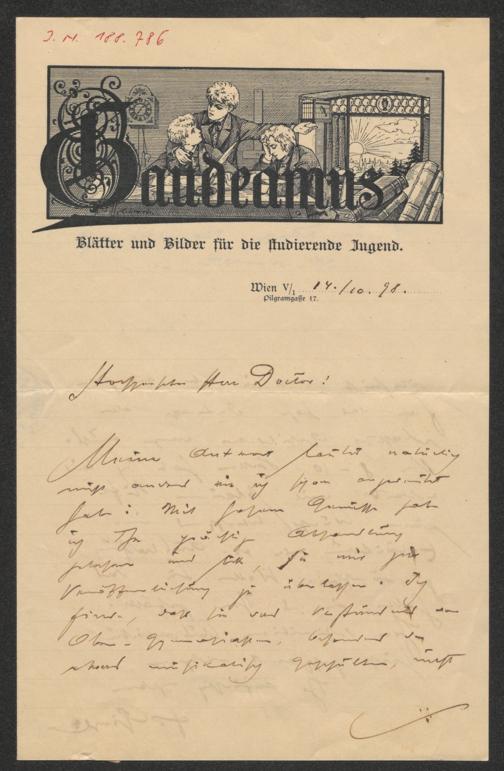 J. N. 188.786
Gaudeamus
Blätter und Bilder für die studierende Jugend.
Wien V/1 14./10. 98.
Pilgramgasse 17.
Hochgeehrter Herr Doctor!
Meine Antwort lautet natürlich
nicht anders als ich schon angedeutet
habe: Mit hohem Genusse habe
ich Ihre Abhandlung
gelesen und bitte, sie mir zur
Veröffentlichung zu überlassen. Ich
finde, daß sie das Verständnis
Ober-Gymnasiasten, besonders der
etwas musikalisch geschulten, nicht